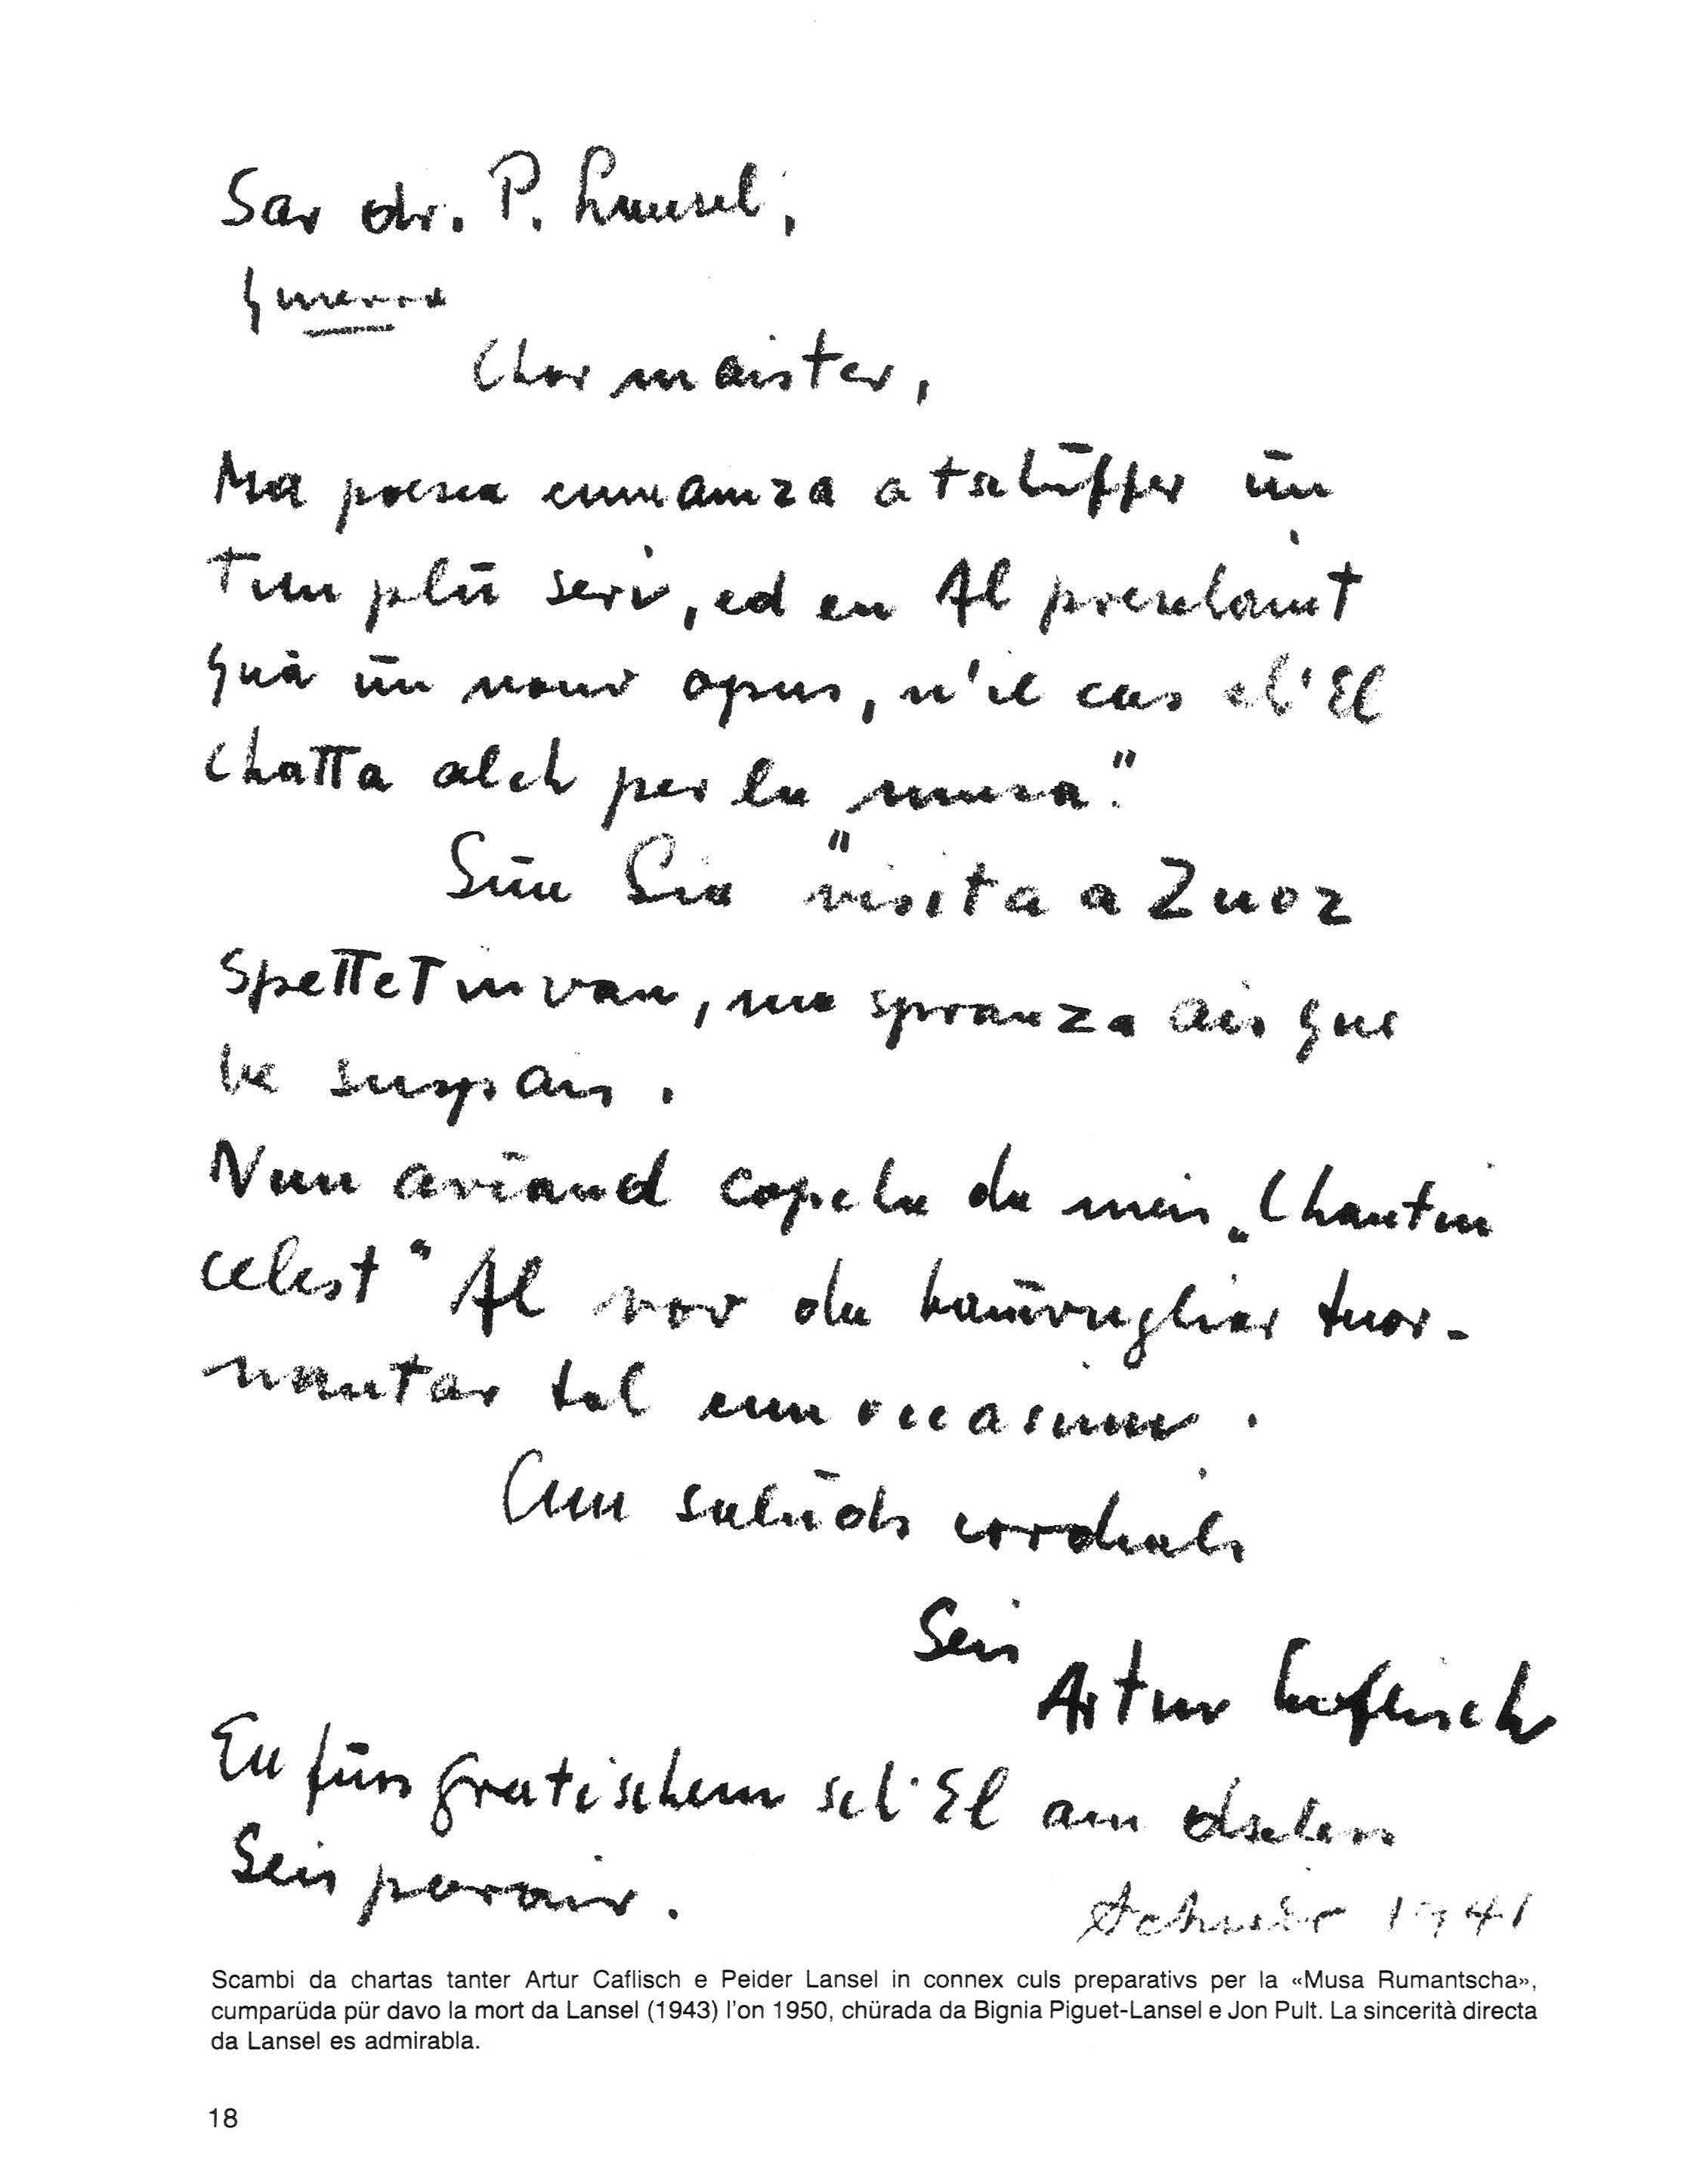 Sar dr. P. Lansel,
Ginevra
Char maister,
Ma poesia cumainza a tschüffer ün
tun plü seri, ed eu Al preschaint
quà ün nouv opus, n'il cas ch'El
chatta alch per la „musa".
Sün Sia visita a Zuoz
spettet invan, ma spranza ais que
be suspais.
Nun aviand copcha da meis „Chantin
celest" Al rov da tuor-
nantar tal cun occasiun.
Cun salüds cordials
Seis
Artur Caflisch
Eu füss grat ischem sch'El am dschess
Seis parair.
1941
Scambi da chartas tanter Artur Caflisch e Peider Lansel in connex culs preparativs per la «Musa Rumantscha»,
cumparüda pür davo la mort da Lansel (1943) l'on 1950, chürada da Bignia Piguet-Lansel e Jon Pult. La sincerità directa
da Lansel es admirabla.
18